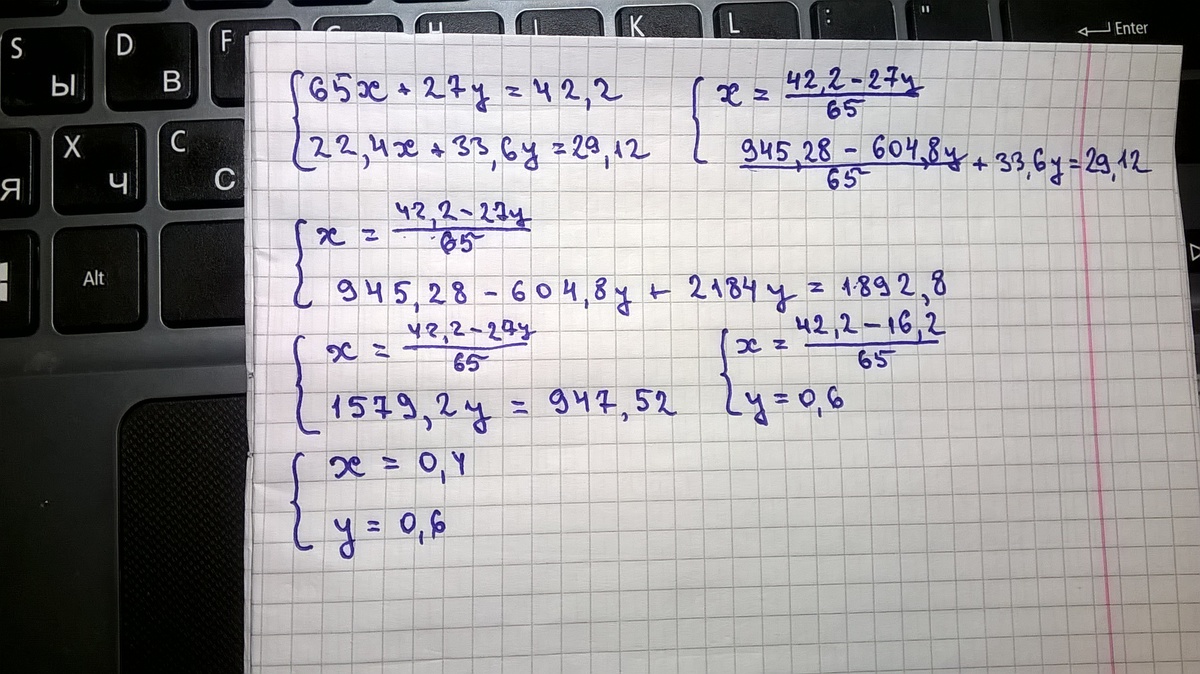 S Ы D В F H J K L : " Enter
65x + 27y = 42,2
22,4x + 33,6y = 29,12
x = (42,2 - 27y)/65
(945,28 - 604,8y)/65 + 33,6y = 29,12
Я X Ч C С
x = (42,2 - 27y)/65
945,28 - 604,8y + 2184y = 1892,8
Alt
x = (42,2 - 27y)/65
1579,2y = 947,52
x = (42,2 - 16,2)/65
y = 0,6
x = 0,4
y = 0,6